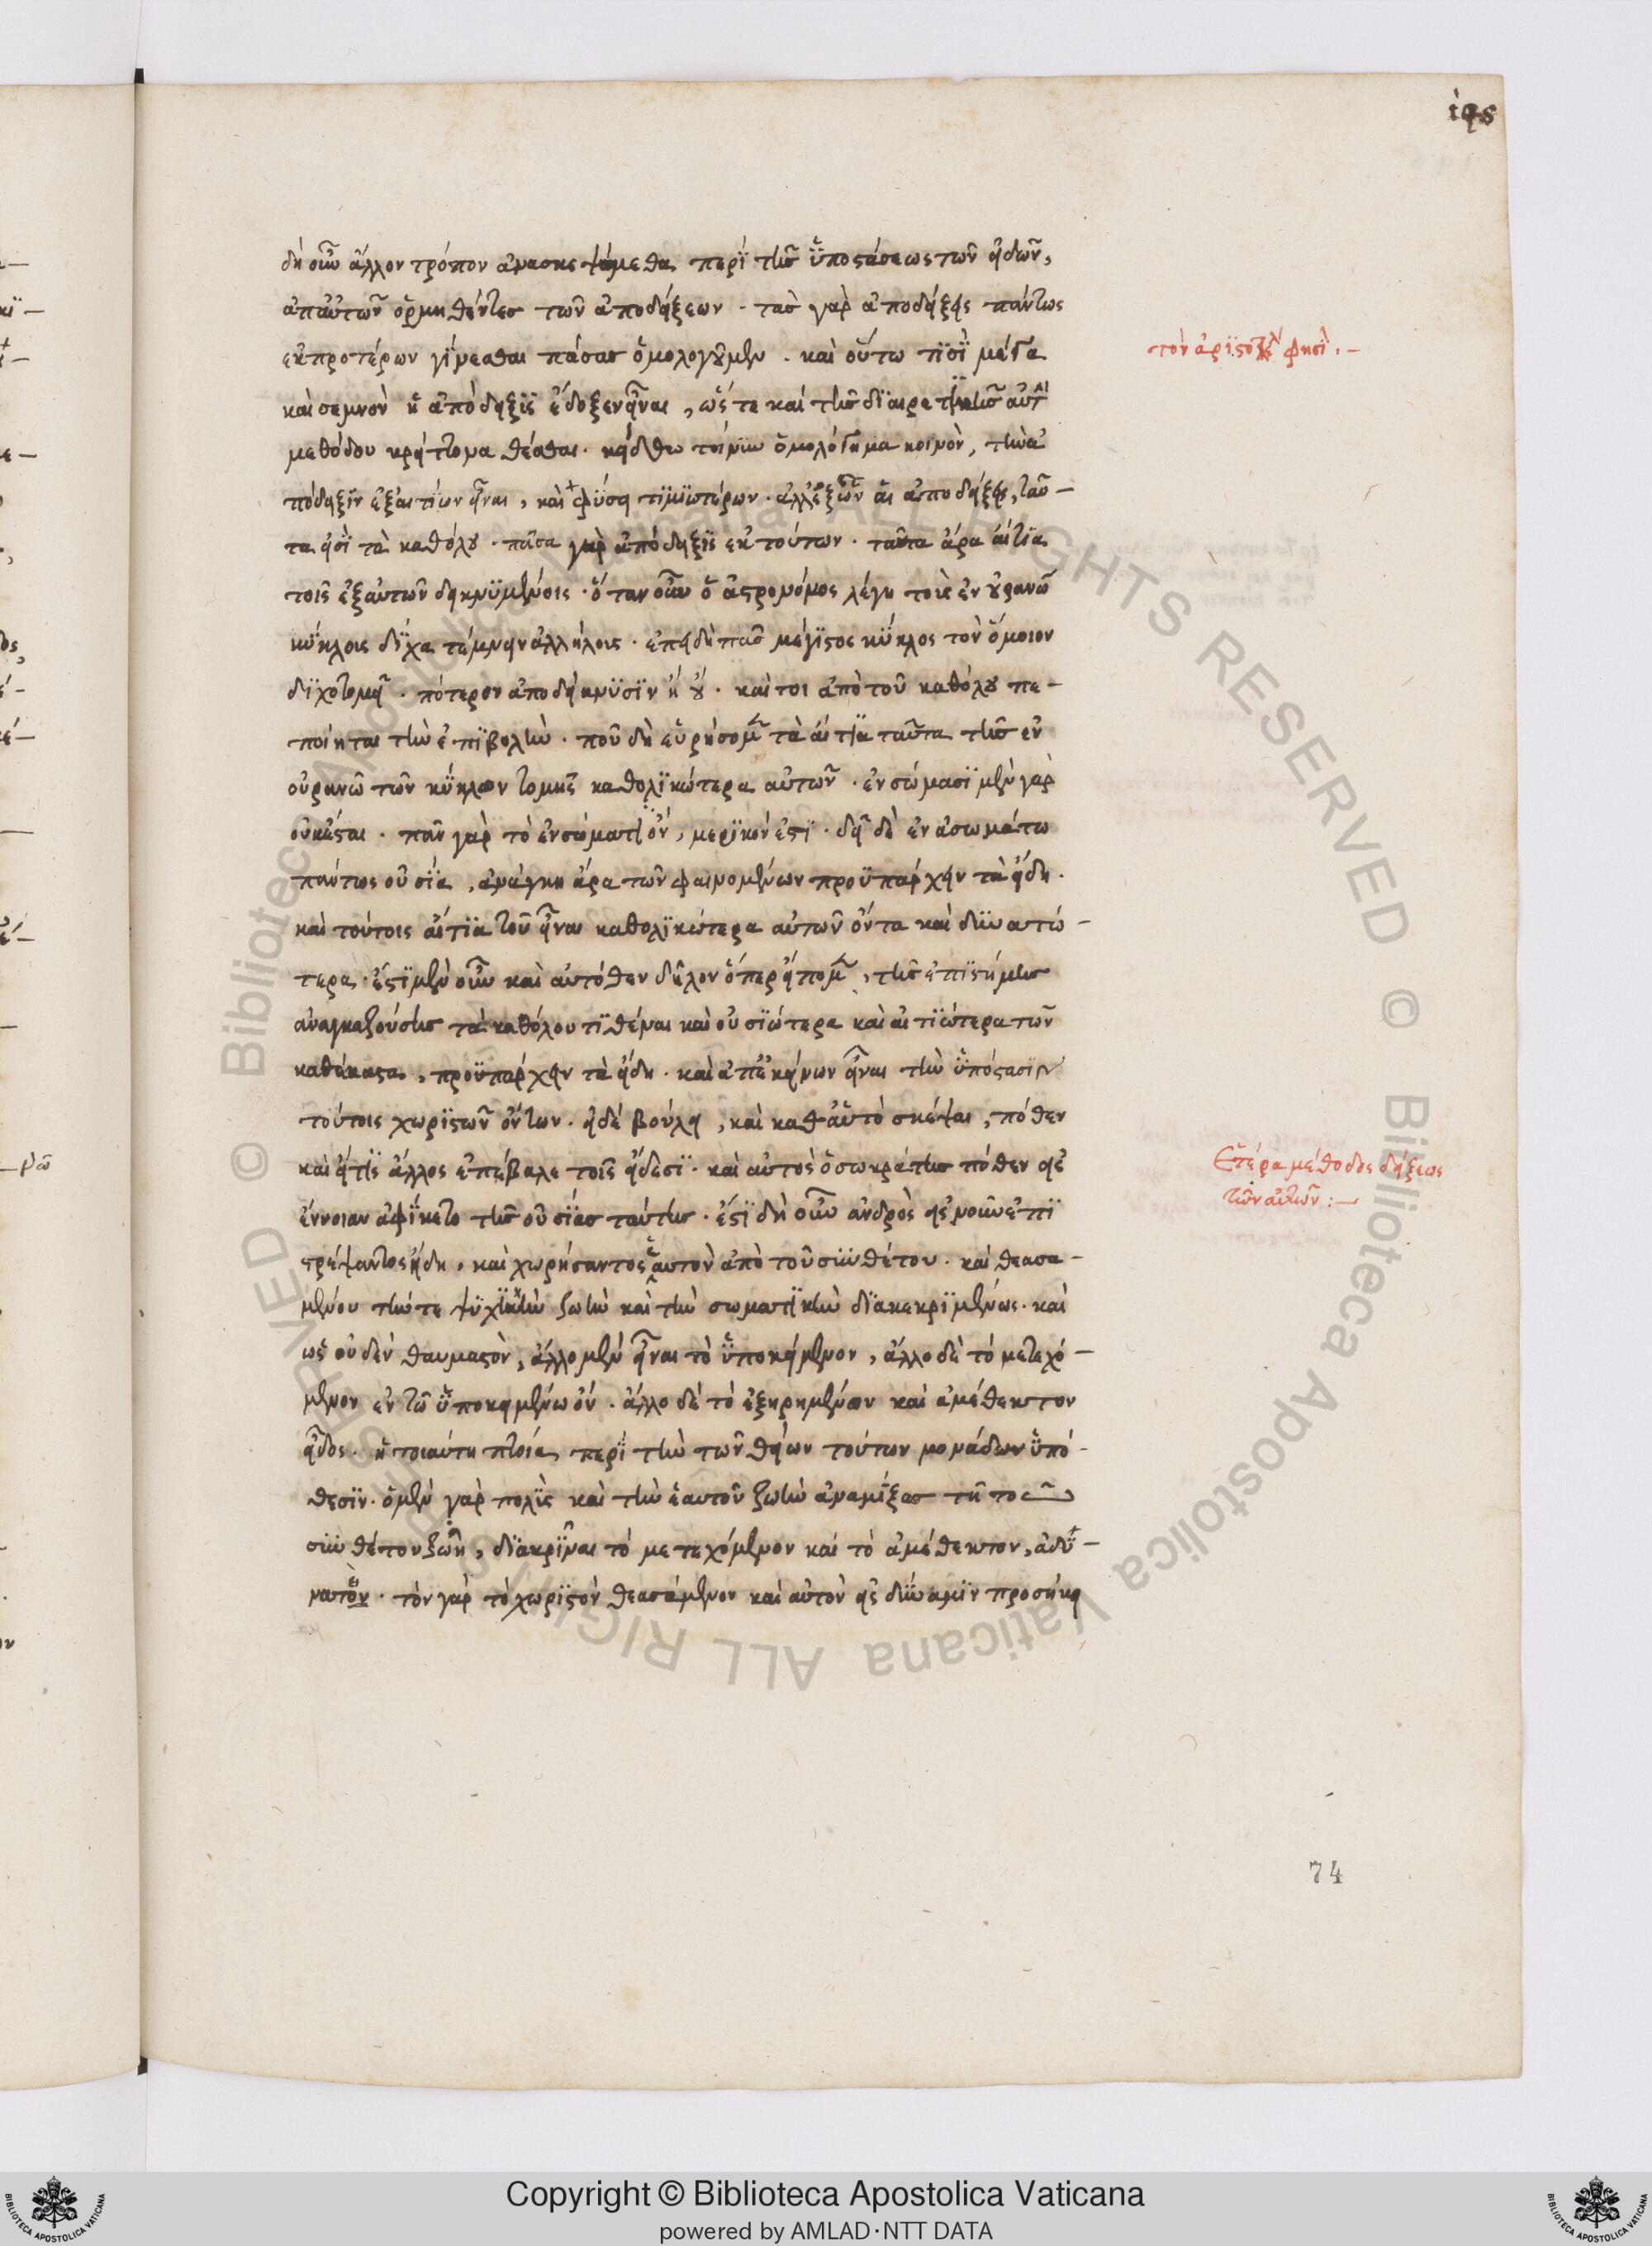 ιϟς
δὴ οὖν ἄλλον τρόπον ἀνασκεψώμεθα περὶ τῆς ὑποστάσεως τῶν εἰδῶν,
ἀπ' αὐτῶν ὁρμηθέντες τῶν ἀποδείξεων · τὰς γὰρ ἀποδείξεις πάντως
ἐκ προτέρων γίνεσθαι πάσας ὁμολογοῦμεν · καὶ οὕτω τισὶ μέγα
τὸν ἀριστοτέλη φησί : —
καὶ σεμνὸν ἡ ἀπόδειξις ἔδοξεν εἶναι, ὥς τε καὶ τῆς διαιρετικῆς αὐτὴν
μεθόδου κρείττονα θέσθαι · κείσθω τοίνυν ὁμολόγημα κοινὸν, τὴν ἀ
πόδειξιν ἐξ αἰτίων εἶναι, καὶ φύσει τιμιωτέρων · ἀλλ' ἐξ ὧν αἱ ἀποδείξεις, ταῦ —
τα εἰσὶ τὰ καθόλου · πᾶσα γὰρ ἀπόδειξις ἐκ τούτων · ταῦτα ἄρα αἴτια
τοῖς ἐξ αὐτῶν δεικνυμένοις · ὅταν οὖν ὁ ἀστρονόμος λέγη τοὺς ἐν οὐρανῶ
κύκλοις δίχα τέμνειν ἀλλήλοις · ἐπειδὴ πᾶς μέγιστος κύκλος τὸν ὅμοιον
διχοτομεῖ · πότερον ἀποδείκνυσιν ἢ οὔ · καίτοι ἀπὸ τοῦ καθόλου πε —
ποίηται τὴν ἐπιβολὴν · ποῦ δὴ εὑρήσομεν τὰ αἴτια ταῦτα τῆς ἐν
οὐρανῶ τῶν κύκλων τομῆς καθολικώτερα αὐτῶν · ἐν σώμασι μὲν γὰρ
οὐκ ἔσται · πᾶν γὰρ τὸ ἐν σώματι ὂν, μερικόν ἐστι · δεῖ δὲ ἐν ἀσωμάτω
πάντως οὐσία, ἀνάγκη ἄρα τῶν φαινομένων προϋπάρχειν τὰ εἴδη ·
καὶ τούτοις αἴτια τοῦ εἶναι καθολικώτερα αὐτῶν ὄντα καὶ δυνατώ —
τερα · ἔστι μὲν οὖν καὶ αὐτόθεν δῆλον ὅπερ εἴπομεν, τῆς ἐπιστήμης
ἀναγκαζούσης τὰ καθόλου τιθέναι καὶ οὐσιώτερα καὶ αἰτιώτερα τῶν
καθέκαστα, προϋπάρχειν τὰ εἴδη · καὶ ἀπ' ἐκείνων εἶναι τὴν ὑπόστασιν
τούτοις χωριστῶν ὄντων · εἰ δὲ βούλει, καὶ καθ' αὑτὸ σκέψαι, πόθεν
καὶ εἴ τις ἄλλος ἐπέβαλε τοῖς εἴδεσι · καὶ αὐτὸς ὁ σωκράτης πόθεν εἰς
Ἑτέρα μέθοδος δείξεως
τῶν αὐτῶν : —
ἔννοιαν ἀφίκετο τῆς οὐσίας ταύτης · ἔστι δὴ οὖν ἀνδρὸς εἰς νοῦν ἐπι
στρέψαντος ἤδη, καὶ χωρήσαντος ἑαυτὸν ἀπὸ τοῦ συνθέτου · καὶ θεασα —
μένου τήν τε ψυχικὴν ζωὴν καὶ τὴν σωματικὴν διακεκριμένως · καὶ
ὡς οὐδὲν θαυμαστὸν, ἄλλο μὲν εἶναι τὸ ὑποκείμενον, ἄλλο δὲ τὸ μετεχό —
μενον ἐν τῶ ὑποκειμένω ὂν · ἄλλο δὲ τὸ ἐξηρημένον καὶ ἀμέθεκτον
εἶδος · ἡ τοιαύτη πτοία περὶ τὴν τῶν θείων τούτων μονάδων ὑπό —
θεσιν · ὁ μὲν γὰρ πολὺς καὶ τὴν ἑαυτοῦ ζωὴν ἀναμίξας τῆ τοῦ
συνθέτου ζωῆ, διακρῖναι τὸ μετεχόμενον καὶ τὸ ἀμέθεκτον, ἀδύ —
νατον · τὸν γὰρ τὸ χωριστὸν θεασάμενον καὶ αὐτὸν εἰς δύναμιν προσήκει
74